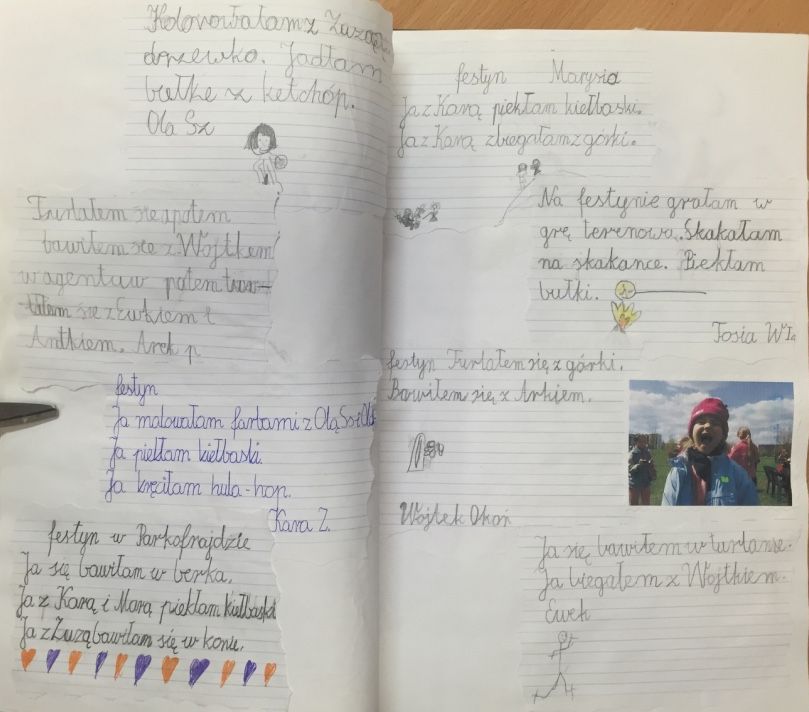 Kolorowałam z Zuzą
drzewko. Jadłam
bułkę z ketchóp.
Ola Sz
Turlałem się apotem
bawiłem się z Wojtkem
w agentuw potem
się z Ewkiem i
Antkiem. Arek p
festyn
Ja malowałam farbami z Olą
Ja piekłam kiełbaski.
Ja kręciłam hula-hop.
Kara Z.
festyn w Parkofrajdzie
Ja się bawiłam w berka.
Ja z Karą i Marą piekłam kiełbaski
Ja z Zuzą bawiłam się w konie.
festyn Marysia
Ja z Karą piekłam kiełbaski.
Ja z Karą zbiegałam z górki.
Na festynie grałam w
grę terenową. Skakałam
na skakance. Piekłam
bułki.
Tosia
festyn Turlałem się z górki.
Bawiłem się z Arkiem.
Wojtek Okoń
Ja się bawiłem w turlanie.
Ja biegałem z Wojtkiem.
Ewek